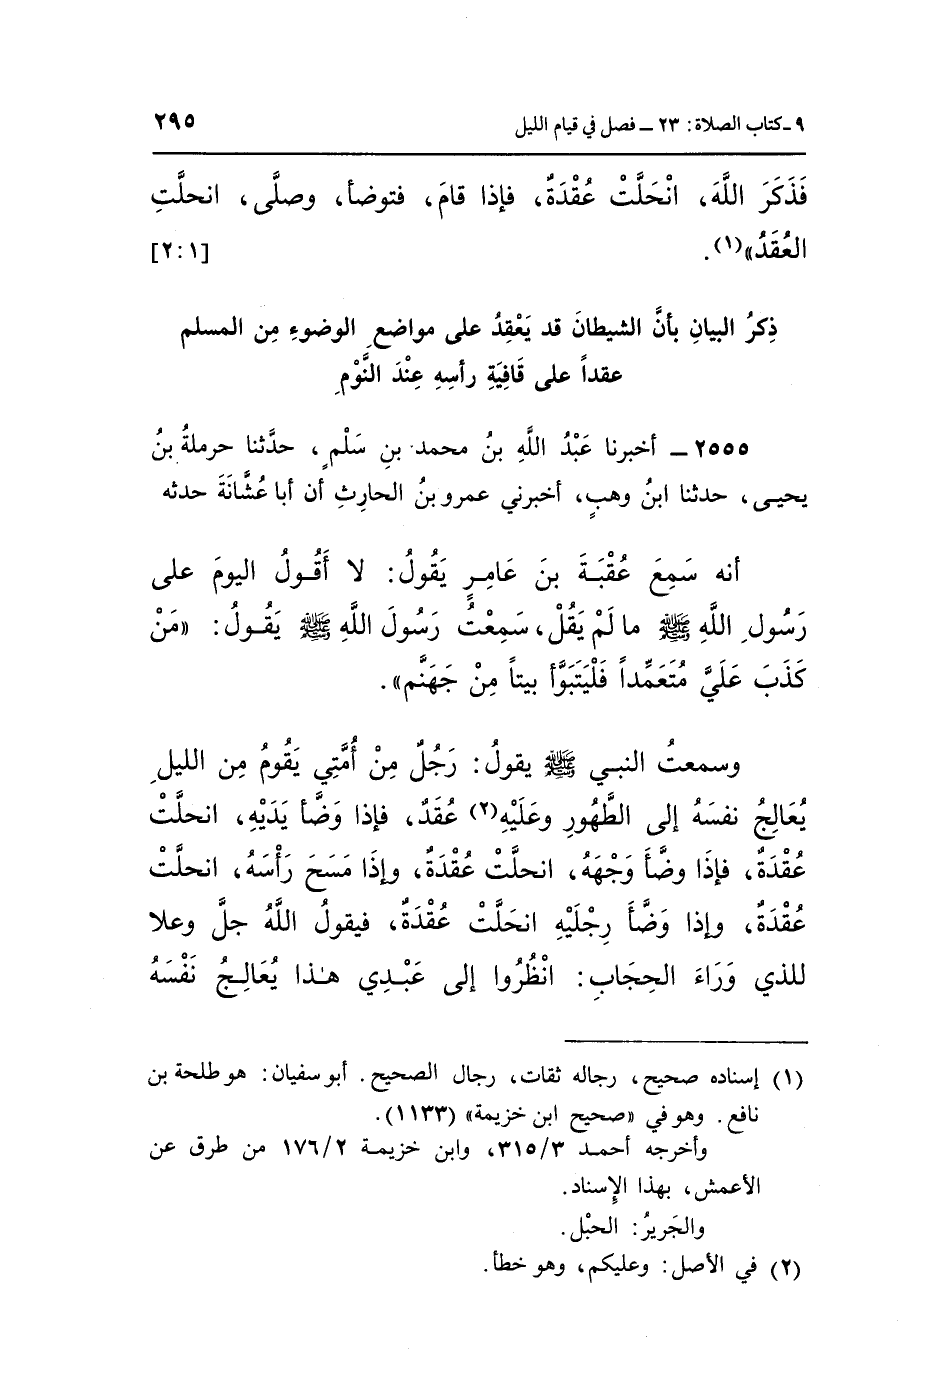 ٩ ـ كتاب الصلاة: ٢٣ ـ فصل في قيام الليل ٢٩٥
فَذَكَرَ اللَّهَ، انْحَلَّتْ عُقْدَةٌ، فإذا قامَ، فتوضأ، وصلَّى، انحلَّتِ
العُقَدُ»(١). [٢:١]
ذِكرُ البيانِ بأنَّ الشيطانَ قد يَعْقِدُ على مواضعِ الوضوءِ مِن المسلم
عقداً على قَافِيَةِ رأسِهِ عِنْدَ النَّوْمِ
٢٥٥٥ ـ أخبرنا عَبْدُ اللَّهِ بنُ محمد بنِ سَلْمٍ، حدَّثنا حرملةُ بنُ
يحيى، حدثنا ابنُ وهبٍ، أخبرني عمرو بنُ الحارِثِ أن أبا عُشَّانَةَ حدثه
أنه سَمِعَ عُقْبَةَ بنَ عَامِرٍ يَقُولُ: لا أَقُولُ اليومَ على
رَسُولِ اللَّهِ ﷺ ما لَمْ يَقُلْ، سَمِعْتُ رَسُولَ اللَّهِ ﷺ يَقُولُ: «مَنْ
كَذَبَ عَلَيَّ مُتَعَمِّداً فَلْيَتَبَوَّأ بيتاً مِنْ جَهَنَّم».
وسمعتُ النبي ﷺ يقولُ: رَجُلٌ مِنْ أُمَّتِي يَقُومُ مِن الليلِ
يُعَالِجُ نفسَهُ إلى الطَّهُورِ وعَلَيْهِ(٢) عُقَدٌ، فإذا وَضَّأ يَدَيْهِ، انحلَّتْ
عُقْدَةٌ، فإذَا وضَّأَ وَجْهَهُ، انحلَّتْ عُقْدَةٌ، وإذَا مَسَحَ رَأْسَهُ، انحلَّتْ
عُقْدَةٌ، وإذا وَضَّأَ رِجْلَيْهِ انحَلَّتْ عُقْدَةٌ، فيقولُ اللَّهُ جلَّ وعلا
للذي وَرَاءَ الحِجَابِ: انْظُرُوا إلى عَبْدِي هٰذا يُعَالِجُ نَفْسَهُ
(١) إسناده صحيح، رجاله ثقات، رجال الصحيح. أبو سفيان: هو طلحة بن
نافع. وهو في «صحيح ابن خزيمة» (١١٣٣).
وأخرجه أحمد ٣١٥/٣، وابن خزيمة ١٧٦/٢ من طرق عن
الأعمش، بهذا الإسناد.
والجَريرُ: الحبْل.
(٢) في الأصل: وعليكم، وهو خطأ.